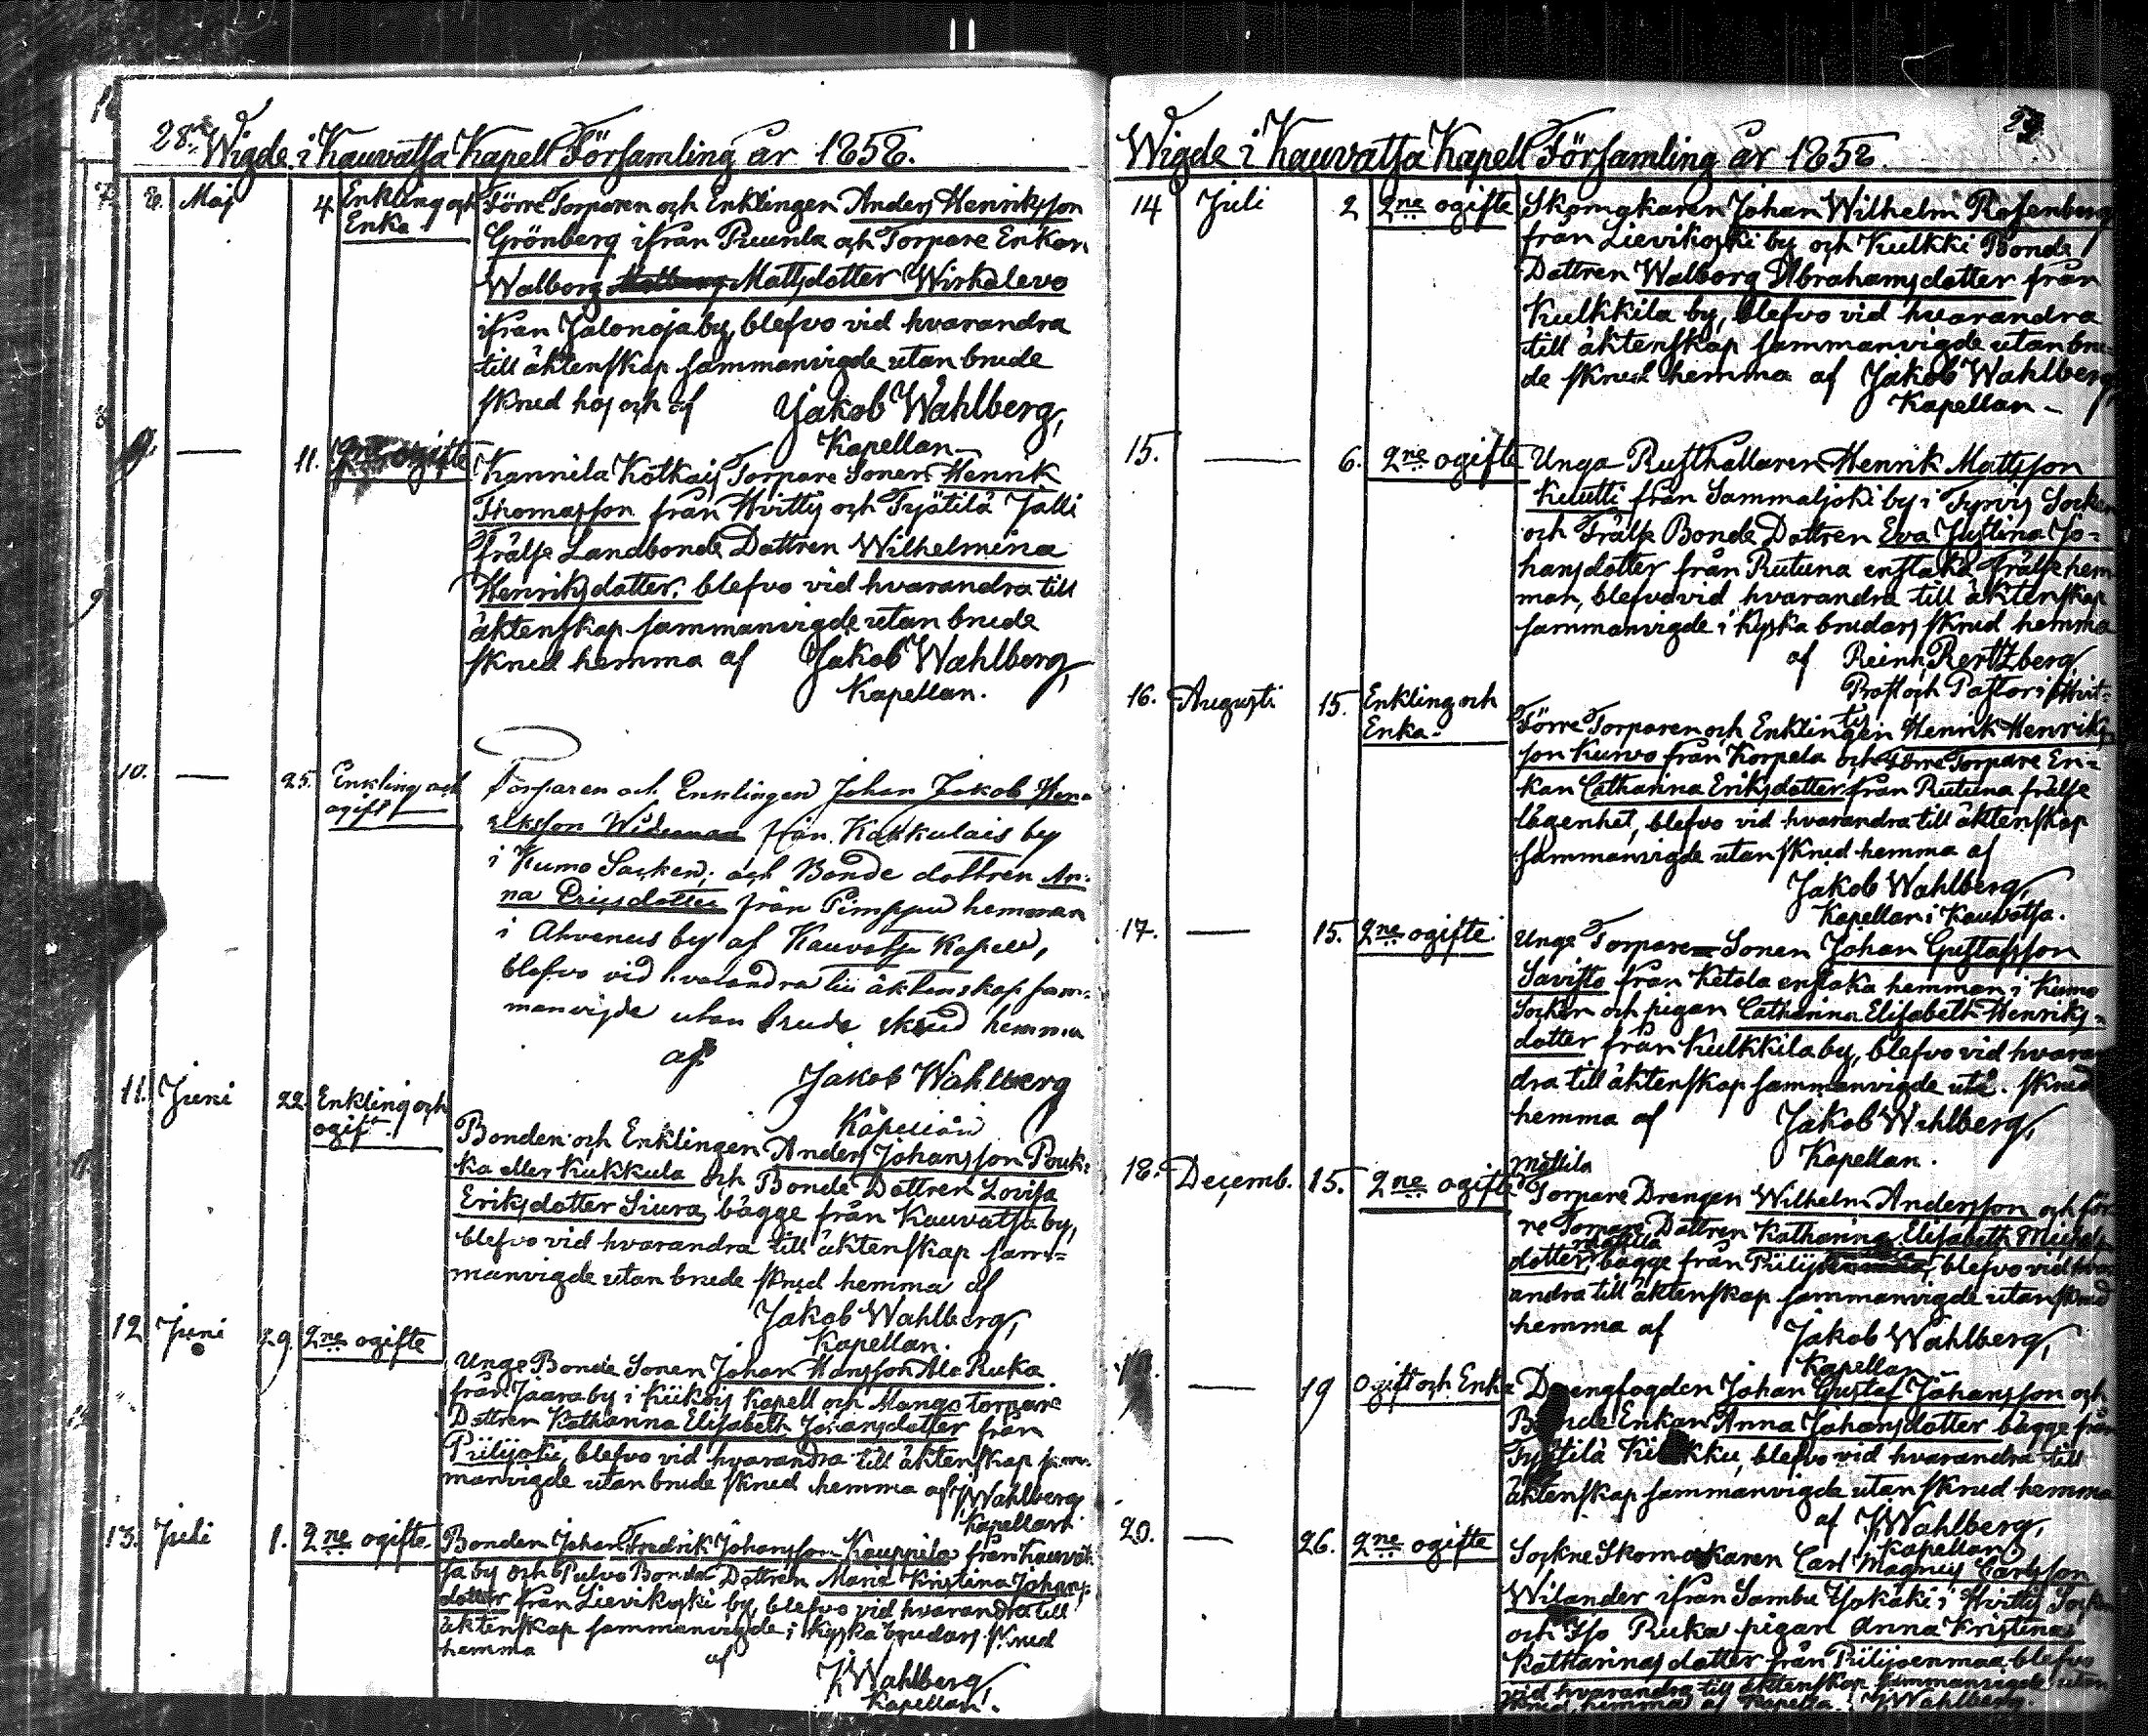 28.
Wigde i Kauvatsa Kapell Församling år 1858.
8. Maj 4 Enkling och Enka
Förre Torparen och Enklingen Anders Henriksson
Grönberg ifrån Puurila och Torpare Enkan
Walborg Mattsdotter Wirkalevo
ifrån Jalonoja by, blefvo vid hvarandra
till äktenskap sammanvigde utan brude
skrud hos och af Jakob Wahlberg,
Kapellan
9. — 11. 2ne ogifte
Kannila Kotkais Torpare Sonen Henrik
Thomasson från Hvittis och Tyätilä Jalli
Frälse Landbonde Dottren Wilhelmina
Henriksdotter, blefvo vid hvarandra till
äktenskap sammanvigde utan brude
skrud hemma af Jakob Wahlberg,
Kapellan.
10. — 25. Enkling och ogift
Torparen och Enklingen Johan Jakob Hen-
riksson Wideman från Kakkulais by
i Kumo Socken, och Bonde dottren An-
na Ericsdotter från Pimppu hemman
i Ahvenus by af Kauvatsa Kapell,
blefvo vid hvarandra till äktenskap sam-
manvigde utan brude skrud hemma
af
Jakob Wahlberg
Kapellan
11. Juni 22. Enkling och ogift.
Bonden och Enklingen Anders Johansson Pouk-
ka eller Kukkula och Bonde Dottren Lovisa
Eriksdotter Siura, bägge från Kauvatsa by,
blefvo vid hvarandra till äktenskap sam-
manvigde utan brude skrud hemma af
Jakob Wahlberg,
Kapellan.
12. Juni 29. 2ne ogifte
Unge Bonde Sonen Johan Hansson Ala Ruka
från Jaara by i Kiikois Kapell och Mango torpare
Dottren Katharina Elisabeth Johansdotter från
Piilijoki, blefvo vid hvarandra till äktenskap sam-
manvigde utan brude skrud hemma af J Wahlberg
Kapellan.
13. Juli 1. 2ne ogifte
Bonden Johan Fredrik Johansson Kauppila från Kauvat-
sa by och Pulvo Bonde Dottren Maria Kristina Johans-
dotter från Lievikoski by, blefvo vid hvarandra till
äktenskap sammanvigde i kyska brudars skrud
hemma af
J Wahlberg,
Kapellan.
Wigde i Kauvatsa Kapell Församling år 1858.
29.
14 Juli 2 2ne ogifte
Skomakaren Johan Wilhelm Rosenberg
från Lievikoski by och Kulkki Bonde
Dottren Walborg Abrahamsdotter från
Kulkkila by, blefvo vid hvarandra
till äktenskap sammanvigde utan bru-
de skrud hemma af Jakob Wahlberg,
Kapellan
15. — 6. 2ne ogifte
Unga Rusthållaren Henrik Mattsson
Kuutti från Sammaljoki by i Tyrvis Socken
och Frälse Bonde Dottren Eva Justina Jo-
hansdotter från Rutuna enstaka Frälse hem
man, blefvo vid hvarandra till äktenskap
sammanvigde i kyska brudars skrud hemma
af Reinh. Rertzberg
Prost och Pastor i Hvit-
tis
16. Augusti 15. Enkling och Enka
Förre Torparen och Enklingen Henrik Henriks-
son Kurvo från Korpela och förre Torpare En-
kan Catharina Eriksdotter från Rutuna frälse
lägenhet, blefvo vid hvarandra till äktenskap
sammanvigde utan skrud hemma af
Jakob Wahlberg,
Kapellan i Kauvatsa.
17. — 15. 2ne ogifte.
Unge Torpare Sonen Johan Gustafsson
Savisto från Ketola enstaka hemman i Kumo
Socken och pigan Catharina Elisabeth Henriks-
dotter från Kulkkila by, blefvo vid hvaran
dra till äktenskap sammanvigde uta. skrud
hemma af Jakob Wahlberg,
Kapellan.
18. Decemb. 15. 2ne ogifte
Mattila
Torpare Drengen Wilhelm Andersson och för
re Torpare Dottren Katharina Elisabeth Michels
dotter, bägge från Piilij blefvo vid hvar
andra till äktenskap sammanvigde utan skrud
hemma af Jakob Wahlberg,
Kapellan
— 19 Ogift och Enka
Drengfogden Johan Gustaf Johansson och
Bonde Enkan Anna Johansdotter bägge från
blefvo vid hvarandra till
äktenskap sammanvigde utan skrud hemma
af J Wahlberg,
Kapellan
20. — 26. 2ne ogifte
Sockne Skomakaren Carl Magnus Carlsson
Wilander ifrån Sambu Yakäki i Hvittis Socken
och Iso Ruka pigan Anna Kristina
Katharinas dotter från Piilijoenmaa, blefvo
vid hvarandra till äktenskap sammanvigde utan
skrud hemma af J Wahlberg.